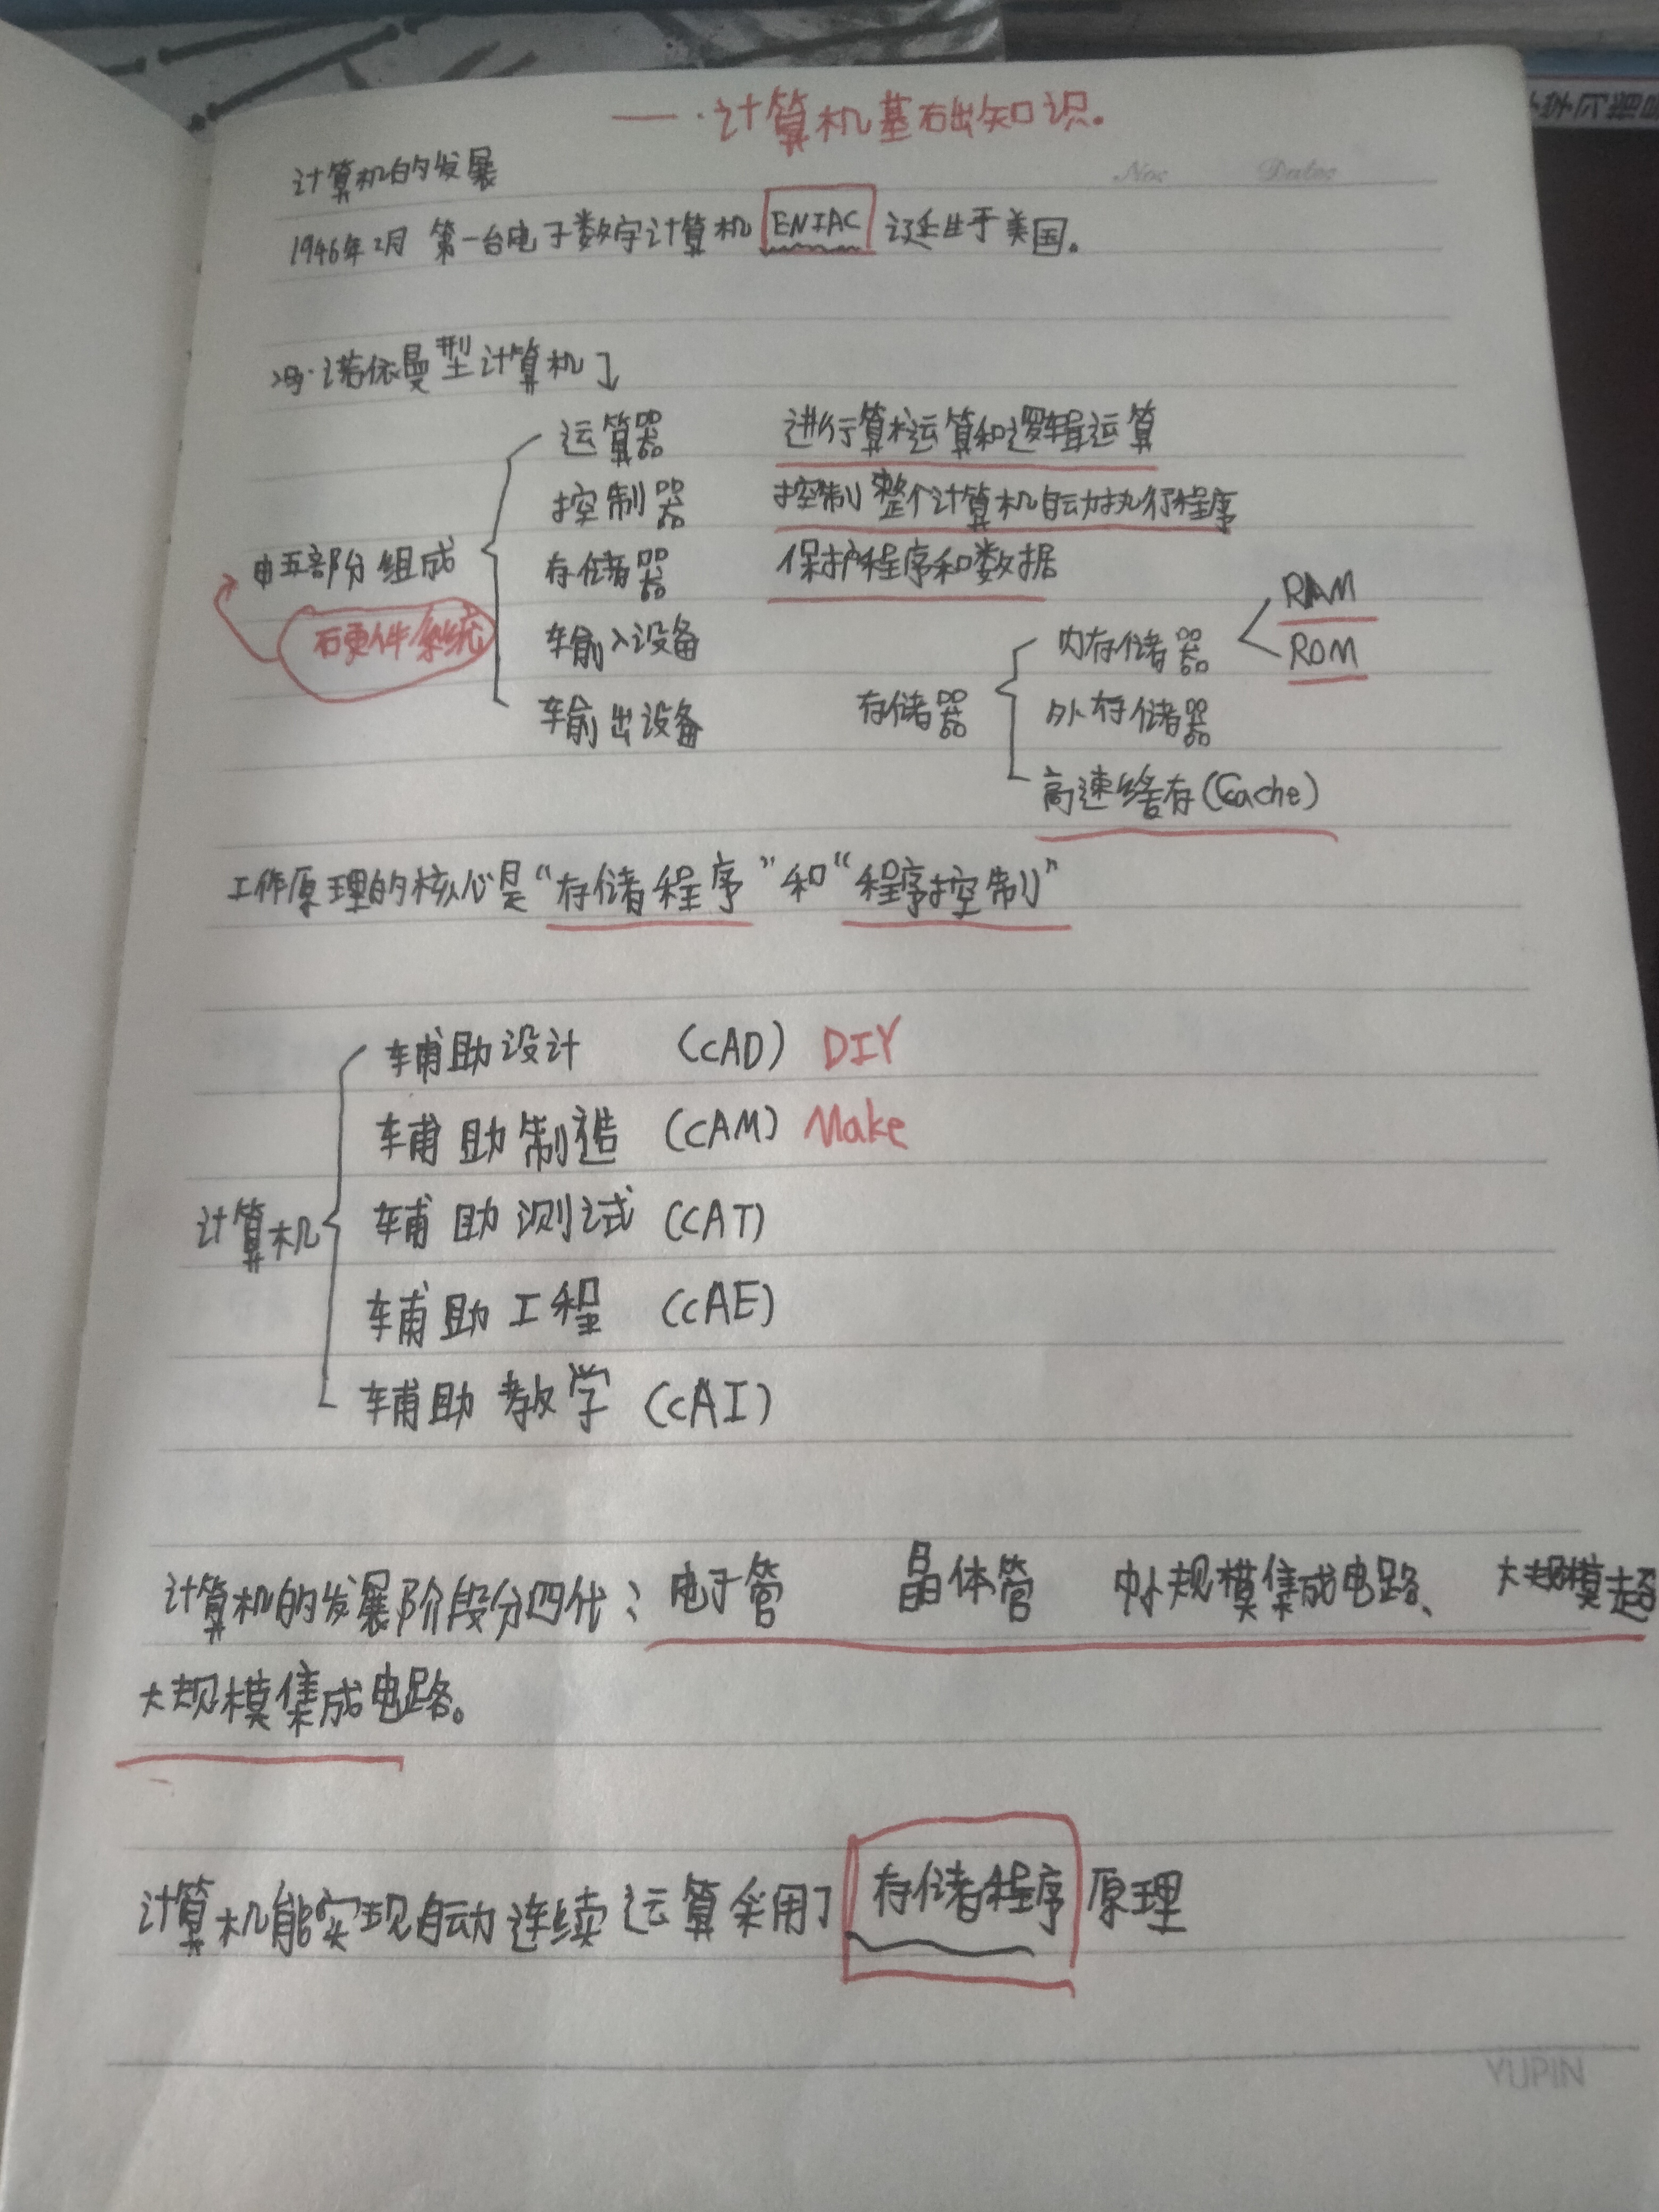 一.计算机基础知识.
Nos Dates
计算机的发展
1946年2月 第一台电子数字计算机 ENIAC 诞生于美国。
冯·诺依曼型计算机
运算器 进行算术运算和逻辑运算
控制器 控制整个计算机自动执行程序
由五部分组成 存储器 保护程序和数据
硬件系统 输入设备
输出设备
存储器 内存储器 RAM
ROM
外存储器
高速缓存(Cache)
工作原理的核心是“存储程序”和“程序控制”
计算机
辅助设计 (CAD) DIY
辅助制造 (CAM) Make
辅助测试 (CAT)
辅助工程 (CAE)
辅助教学 (CAI)
计算机的发展阶段分四代: 电子管 晶体管 中小规模集成电路、 大规模超
大规模集成电路。
计算机能实现自动连续运算采用了 存储程序 原理
YUPIN